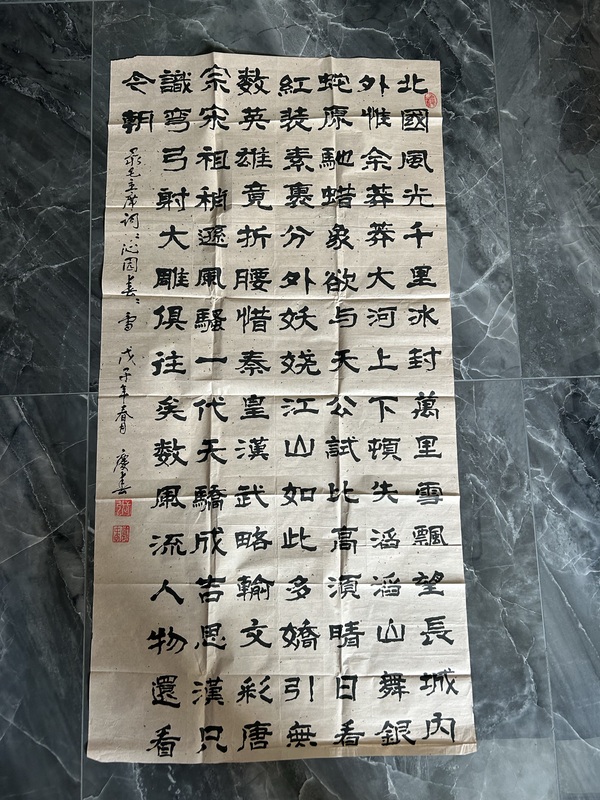 北國風光千里冰封萬里雪飄望長城内
外惟余莽莽大河上下頓失滔滔山舞銀
蛇原馳蜡象欲与天公試比高須晴日看
紅装素裹分外妖娆江山如此多嬌引無
数英雄竟折腰惜秦皇漢武略輸文彩唐
宗宋祖稍遜風騷一代天驕成吉思漢只
識彎弓射大雕俱往矣数風流人物還看
今朝
录毛主席词:沁园春:雪 戊子年春月